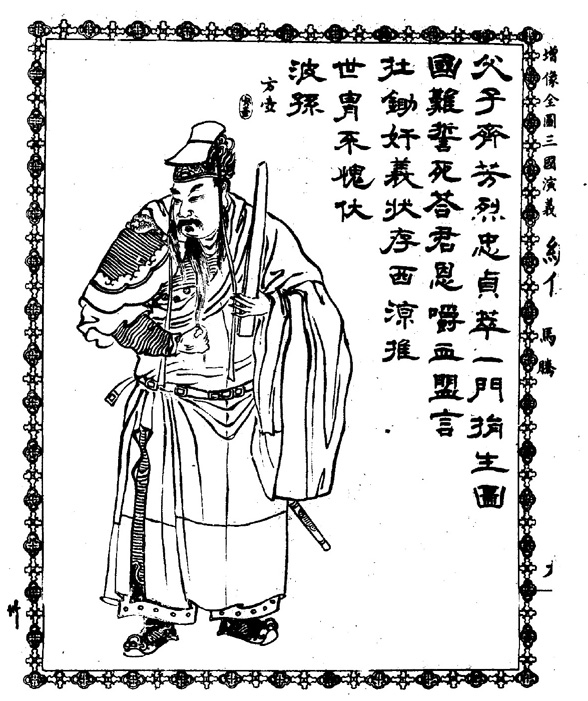 增像全圖三國演義
馬騰
父子齊芳烈忠貞萃一門捐生圖
國難誓死荅君恩嚼血盟言
在鋤奸義狀存西涼推
世胄不愧伏
波孫
方壺